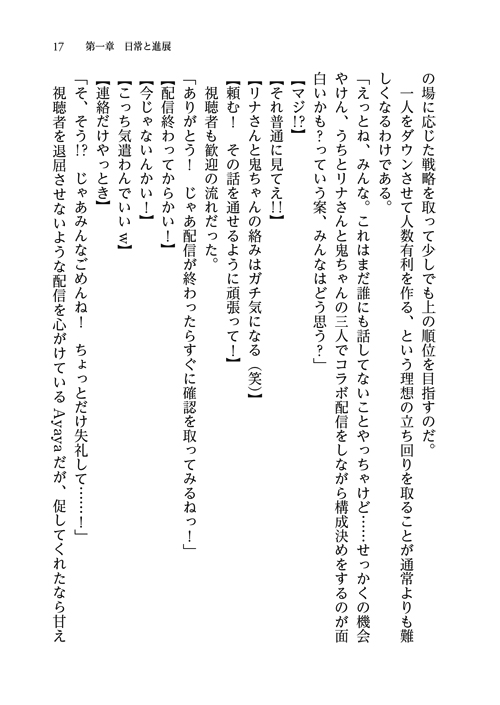 17　第一章　日常と進展
の場に応じた戦略を取って少しでも上の順位を目指すのだ。
　一人をダウンさせて人数有利を作る、という理想の立ち回りを取ることが通常よりも難
しくなるわけである。
「えっとね、みんな。これはまだ誰にも話してないことやっちゃけど……せっかくの機会
やけん、うちとリナさんと鬼ちゃんの三人でコラボ配信をしながら構成決めをするのが面
白いかも？っていう案、みんなはどう思う？」
【マジ!?】
【それ普通に見てえ!!】
【リナさんと鬼ちゃんの絡みはガチ気になる（笑）】
【頼む！　その話を通せるように頑張って！】
　視聴者も歓迎の流れだった。
「ありがとう！　じゃあ配信が終わったらすぐに確認を取ってみるねっ！」
【配信終わってからかい！】
【今じゃないんかい！】
【こっち気遣わんでいいｗ】
【連絡だけやっとき】
「そ、そう!?　じゃあみんなごめんね！　ちょっとだけ失礼して……！」
　視聴者を退屈させないような配信を心がけている Ayaya だが、促してくれたなら甘え